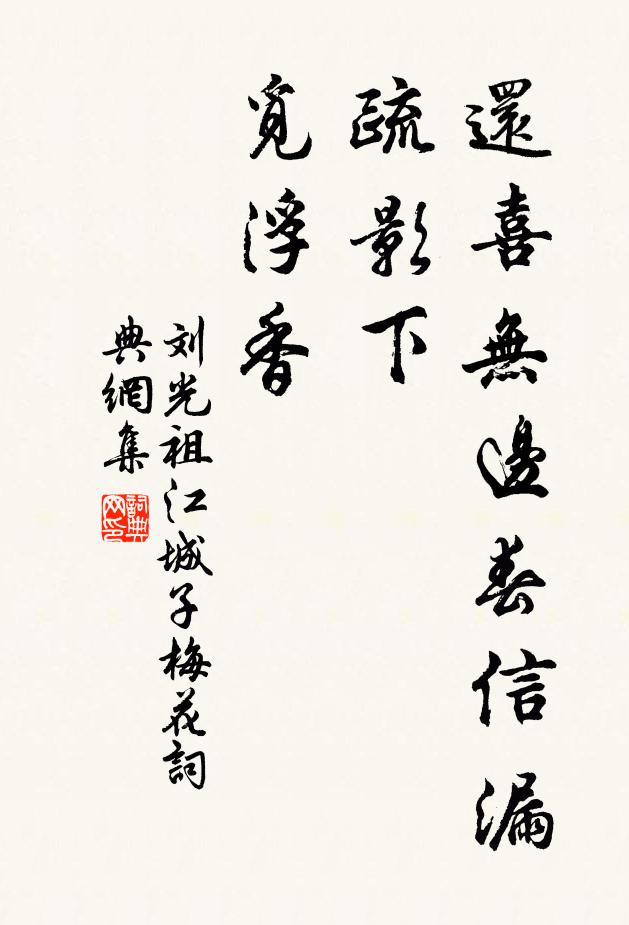 還喜無邊春信漏
疏影下
覓浮香
刘光祖江城子梅花詞
典網集
詞典
网印